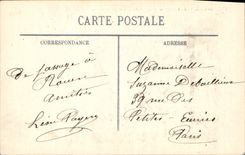 CARTE POSTALE
CORRESPONDANCE
ADRESSE
De passage à
Rouen
Amitiés
Léon
Mademoiselle
Suzanne
39 rue des
Petites-Ecuries
Paris